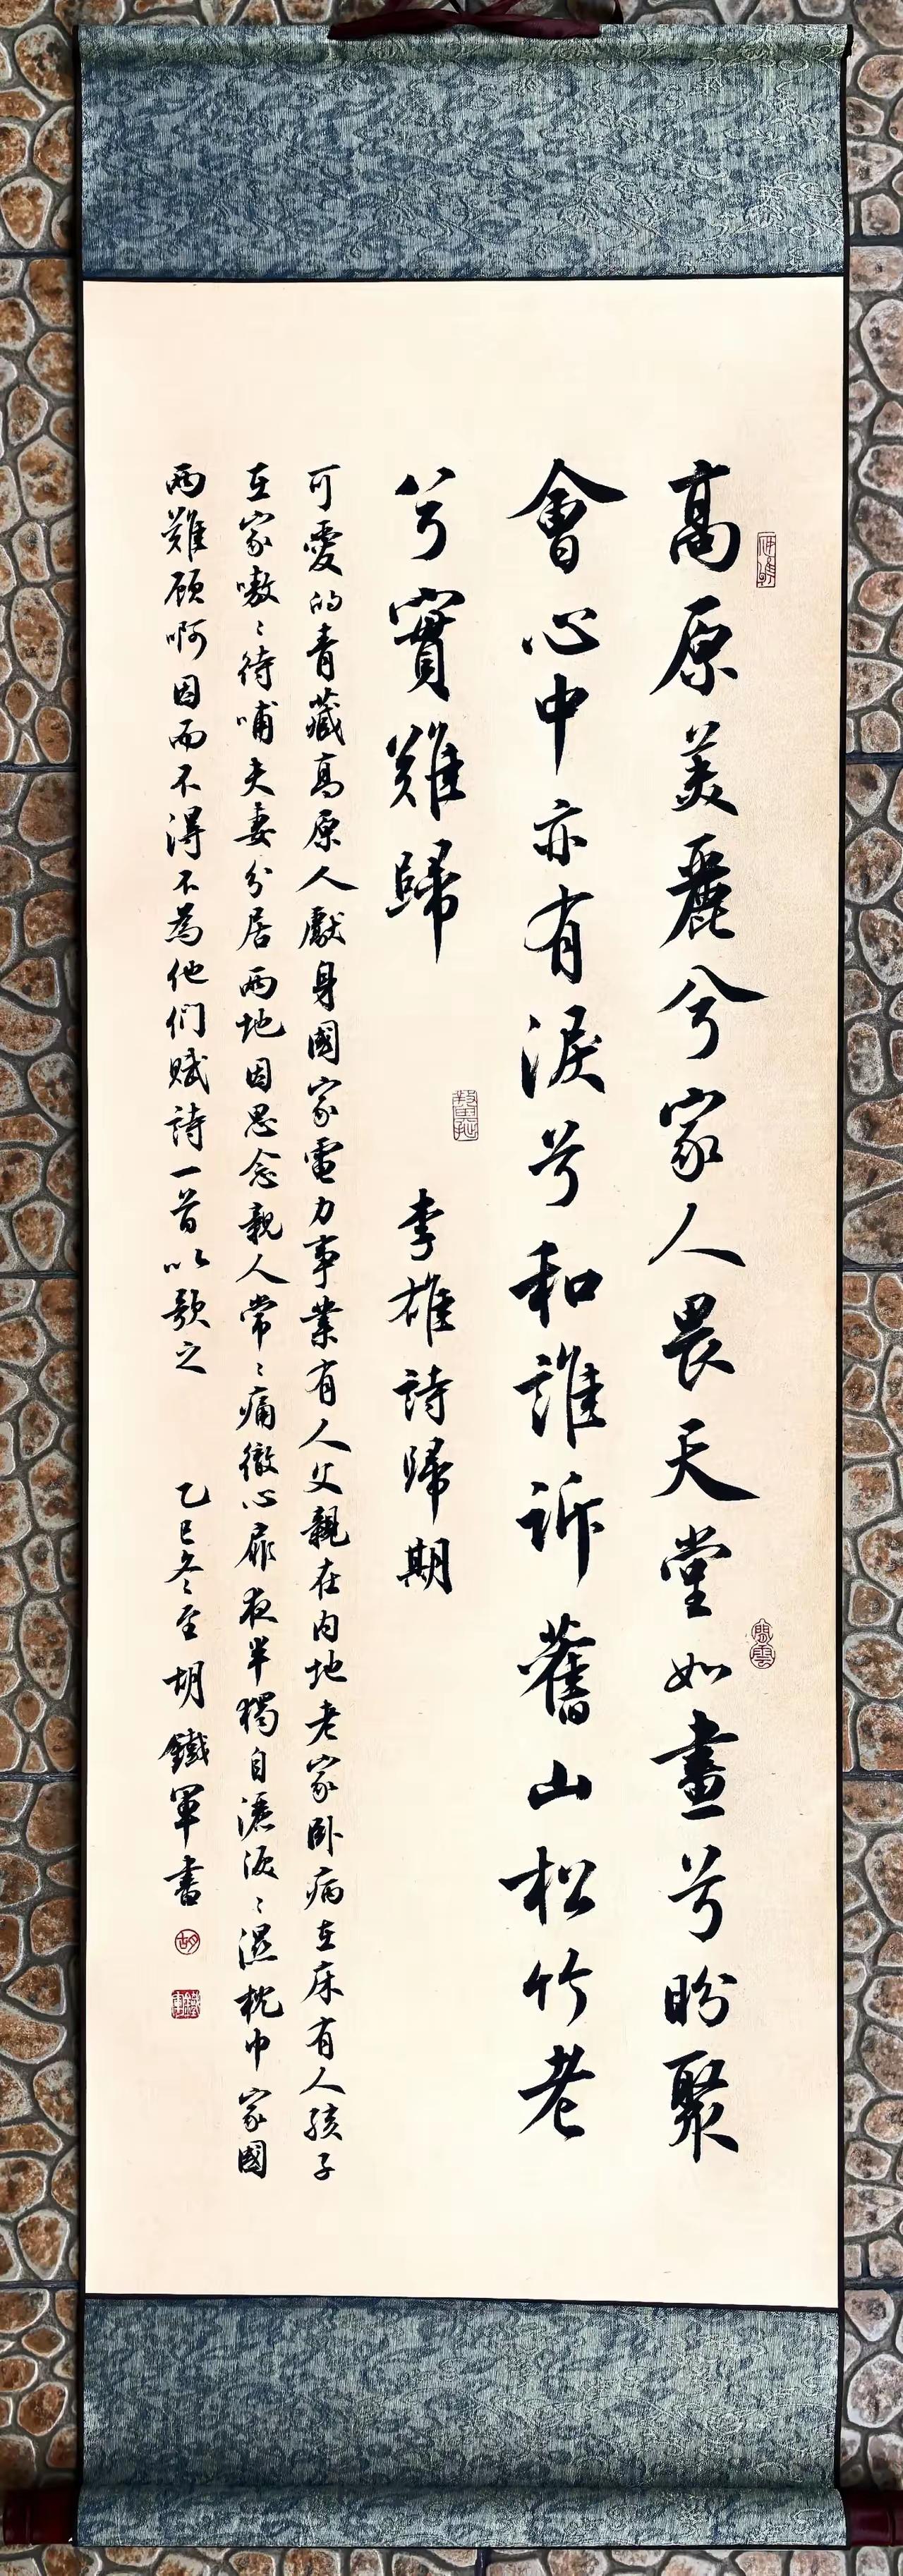 高原美麗兮家人畏天堂如畫兮盼聚
會心中亦有淚兮和誰訴舊山松竹老
兮實難歸
李雄詩歸期
可愛的青藏高原人獻身國家電力事業有人父親在内地老家卧病在床有人孩子
在家嗷〻待哺夫妻分居兩地因思念親人常〻痛徹心扉夜半獨自灑淚〻濕枕巾家國
兩難顧啊因而不得不為他們賦詩一首以歌之
乙巳冬至胡鐵軍書
胡
鐵軍